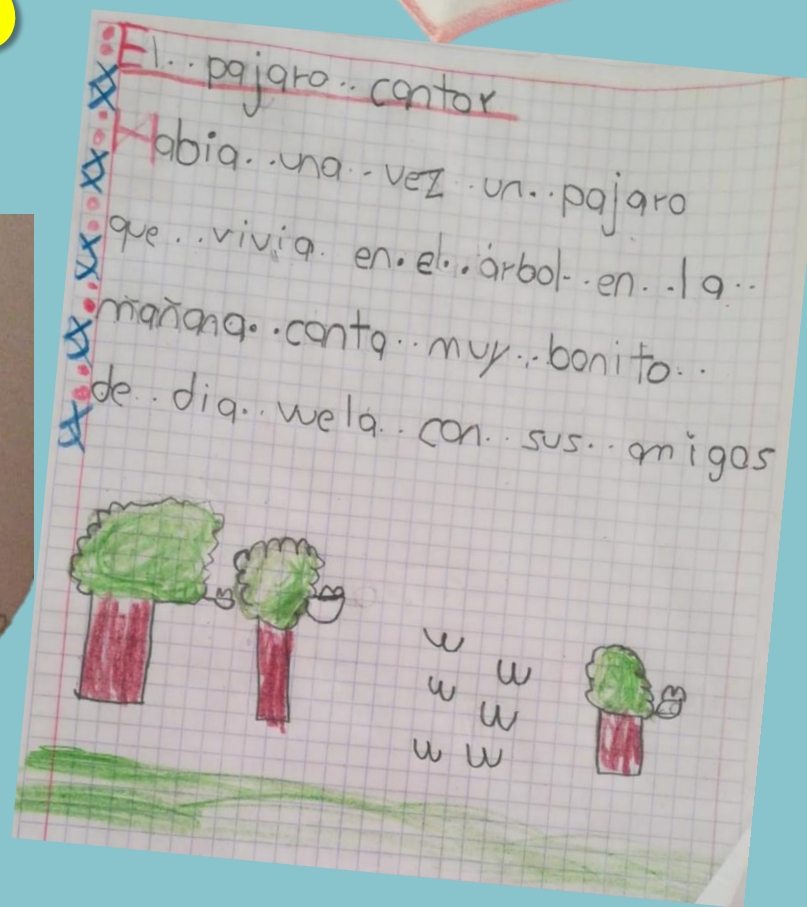 El.. pajaro.. cantor
Habia.. una.. vez. un.. pajaro
que.. vivia. en. el.. árbol.. en.. la..
mañana.. canta.. muy.. bonito..
de.. dia.. wela.. con.. sus.. amigos